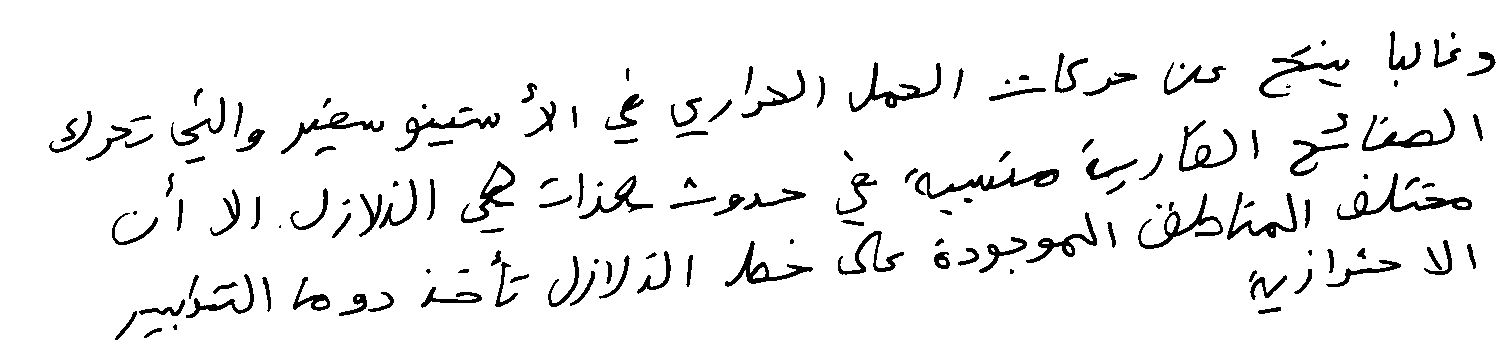 وغالبا ينتج عن حركات الحمل الحراري في الأستينوسفير والتي تحرك
الصفائح القارية متسببة في حدوث هزات هي الزلازل. الا أن
مختلف المناطق الموجودة على خط الزلازل تأخذ دوما التدابير
الاحترازية